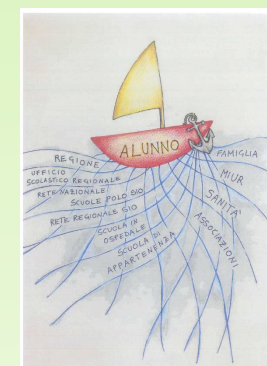 ALUNNO
REGIONE
UFFICIO
SCOLASTICO REGIONALE
RETE NAZIONALE
SCUOLE POLO SIO
RETE REGIONALE SIO
SCUOLA IN
OSPEDALE
SCUOLA DI
APPARTENENZA
FAMIGLIA
MIUR
SANITÀ
ASSOCIAZIONI